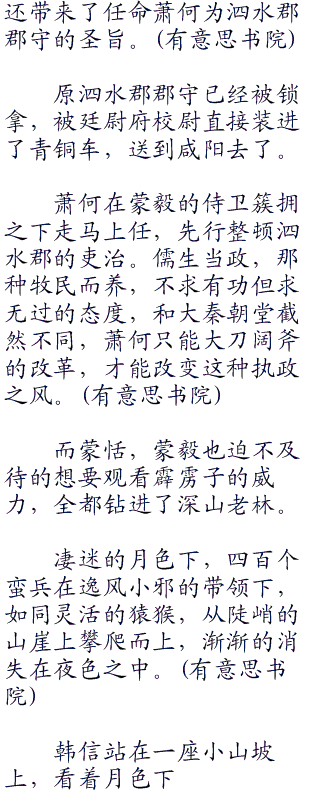 还带来了任命萧何为泗水郡
郡守的圣旨。(有意思书院)
原泗水郡郡守已经被锁
拿，被廷尉府校尉直接装进
了青铜车，送到咸阳去了。
萧何在蒙毅的侍卫簇拥
之下走马上任，先行整顿泗
水郡的吏治。儒生当政，那
种牧民而养，不求有功但求
无过的态度，和大秦朝堂截
然不同，萧何只能大刀阔斧
的改革，才能改变这种执政
之风。(有意思书院)
而蒙恬，蒙毅也迫不及
待的想要观看霹雳子的威
力，全都钻进了深山老林。
凄迷的月色下，四百个
蛮兵在逸风小邪的带领下，
如同灵活的猿猴，从陡峭的
山崖上攀爬而上，渐渐的消
失在夜色之中。(有意思书
院)
韩信站在一座小山坡
上，看着月色下